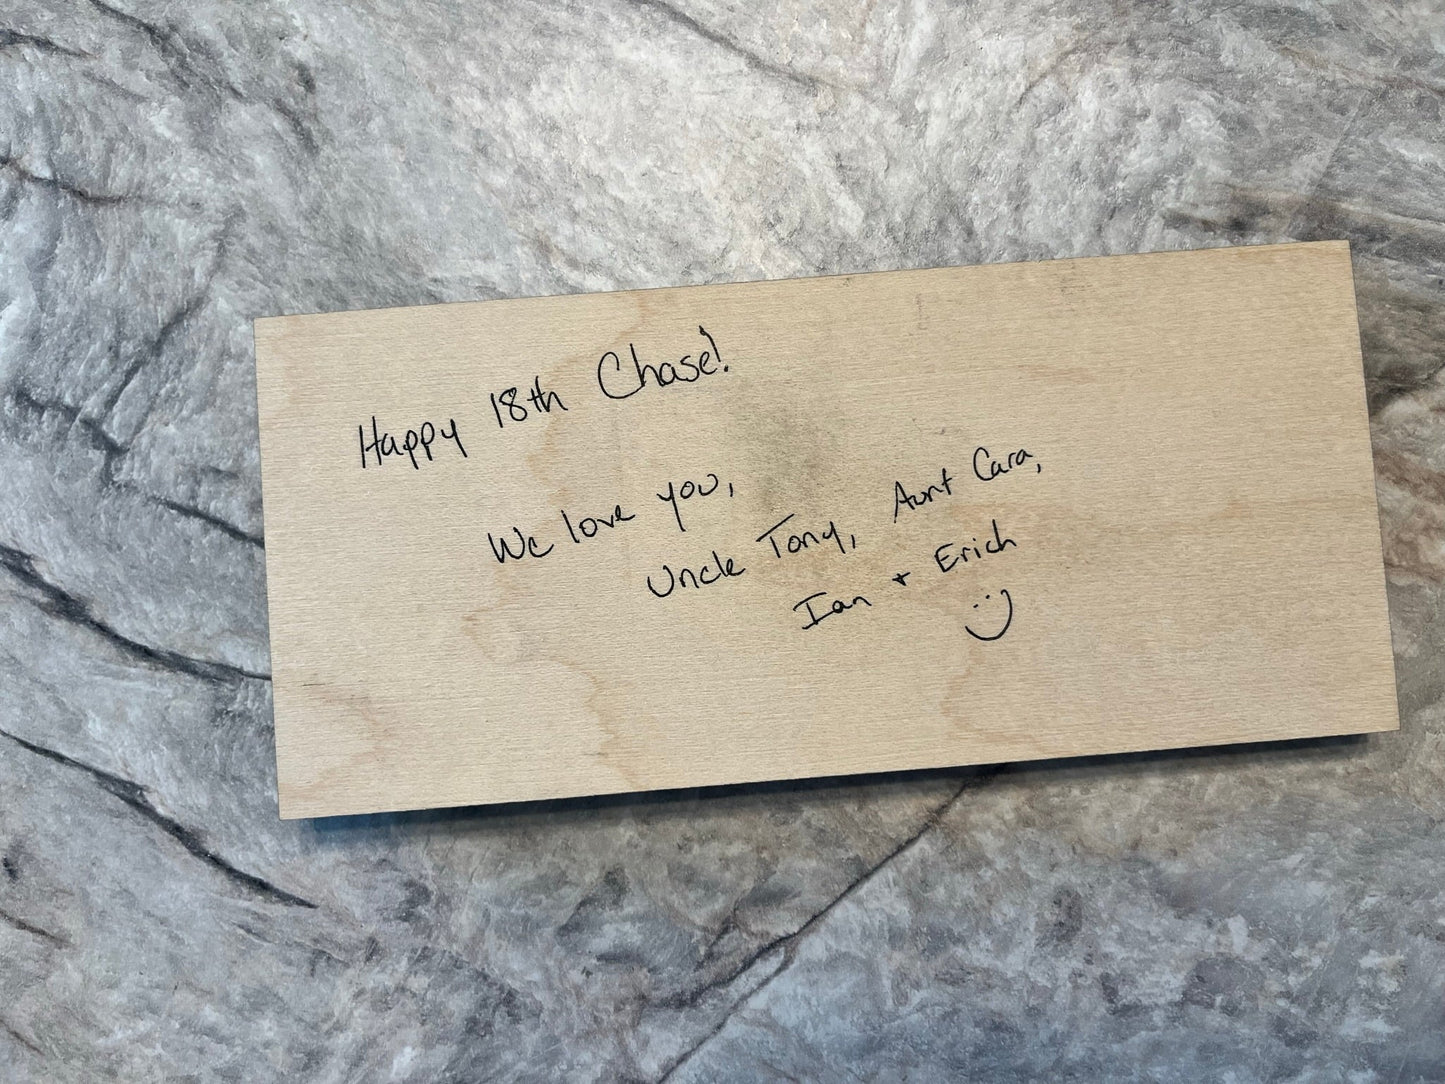 Happy 18th Chase!
We love you,
Uncle Tony, Aunt Cara,
Ian + Erich